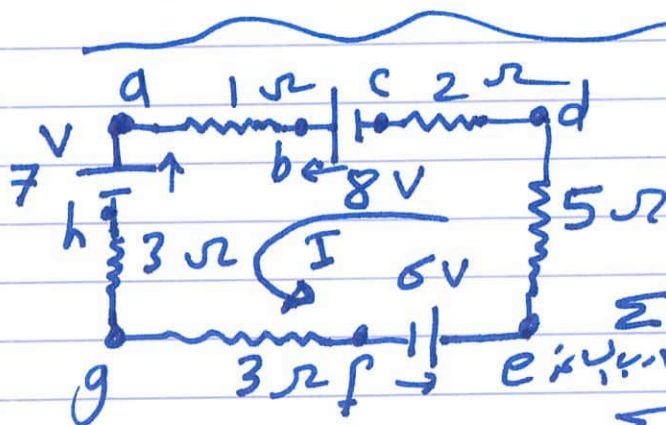 a 1Ω c 2Ω d
V
7 b ← 8 V 5Ω
h 3Ω I 6V
Σ
g 3Ω f → e